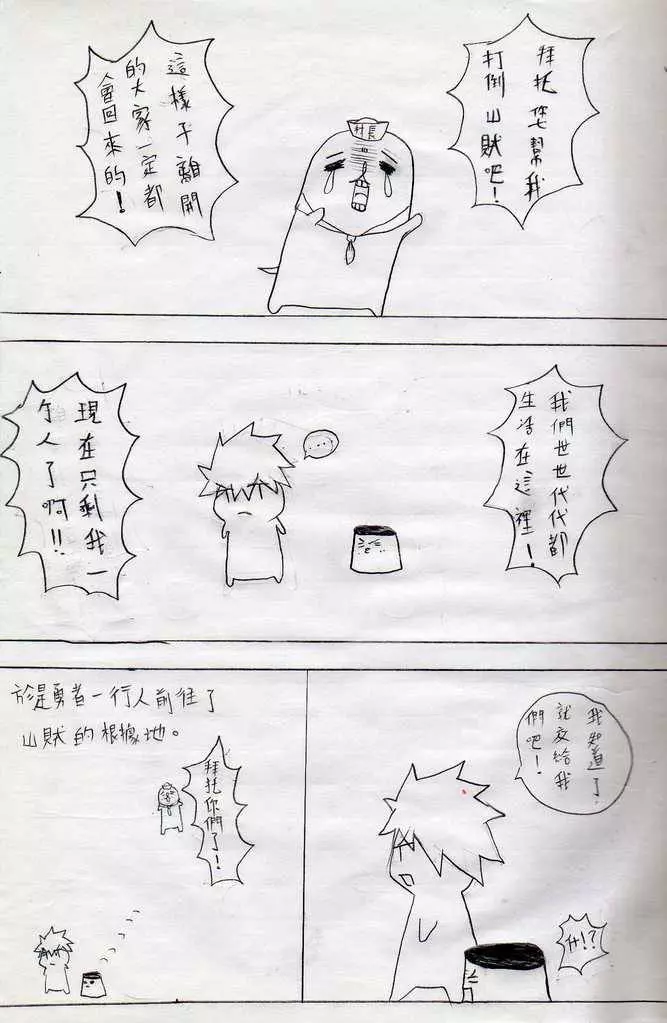 拜托您幫我
打倒山賊吧!
村長
這樣子離開
的大家一定都
會回來的!
我們世世代代都
生活在這裡!
...
現在只剩我一
个人了啊!!
我知道了
就交給我
們吧!
什!?
於是勇者一行人前往了
山賊的根據地。
拜托你們了!